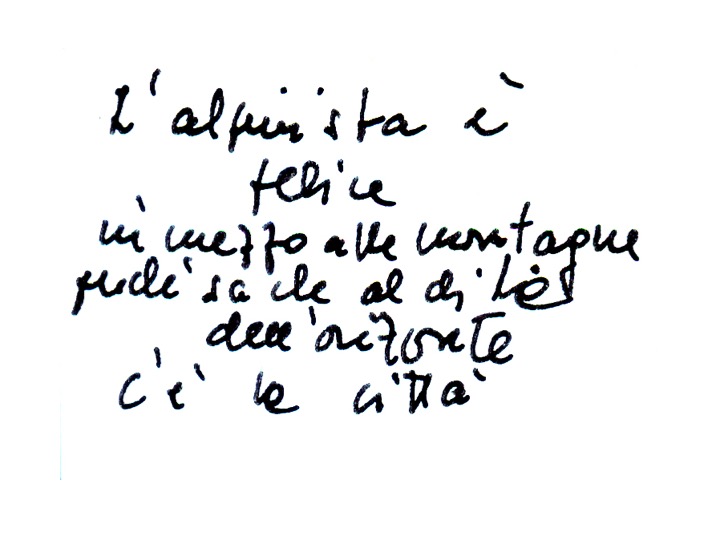 L'alpinista è
felice
in mezzo alle montagne
perché sa che al di là
dell'orizzonte
c'è la città